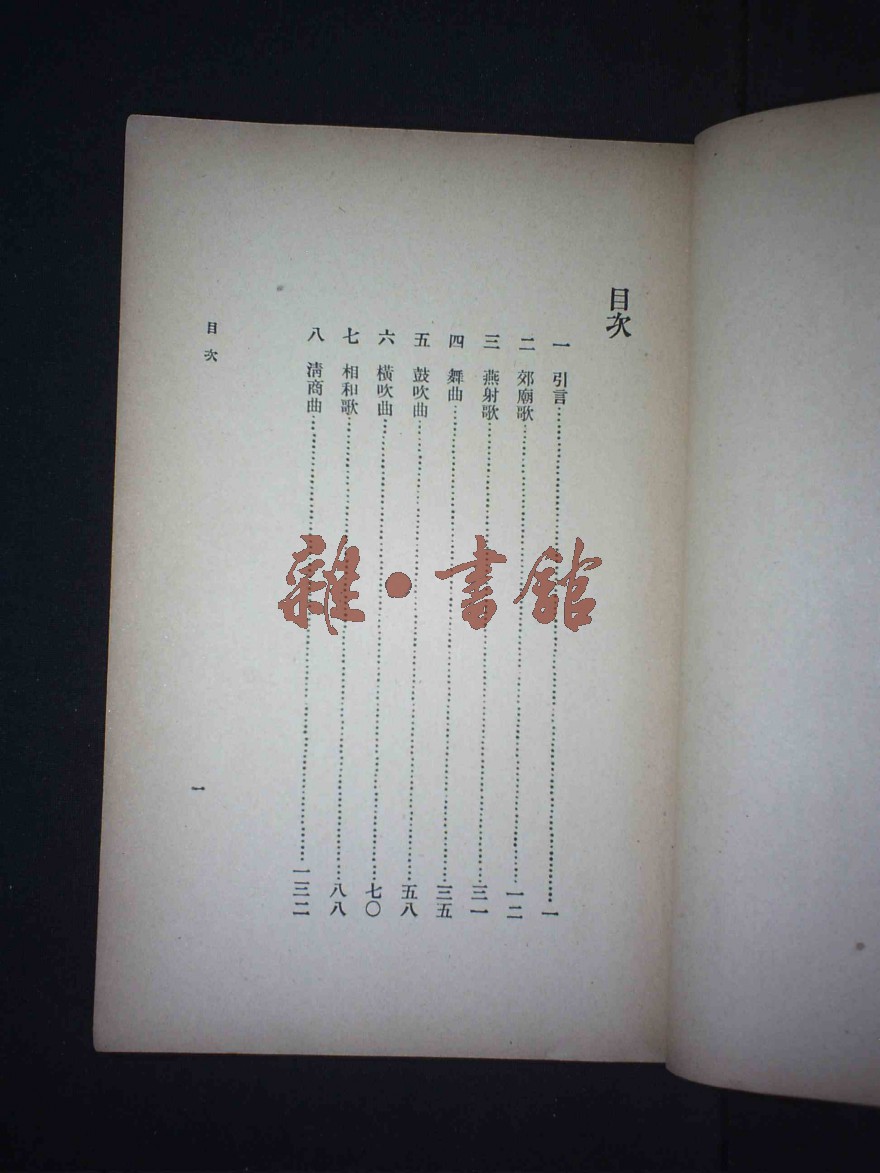 目次
一 引言……一
二 郊廟歌……一二
三 燕射歌……三一
四 舞曲……三五
五 鼓吹曲……五八
六 橫吹曲……七〇
七 相和歌……八八
八 淸商曲……一三二
目次
一
雜·書館